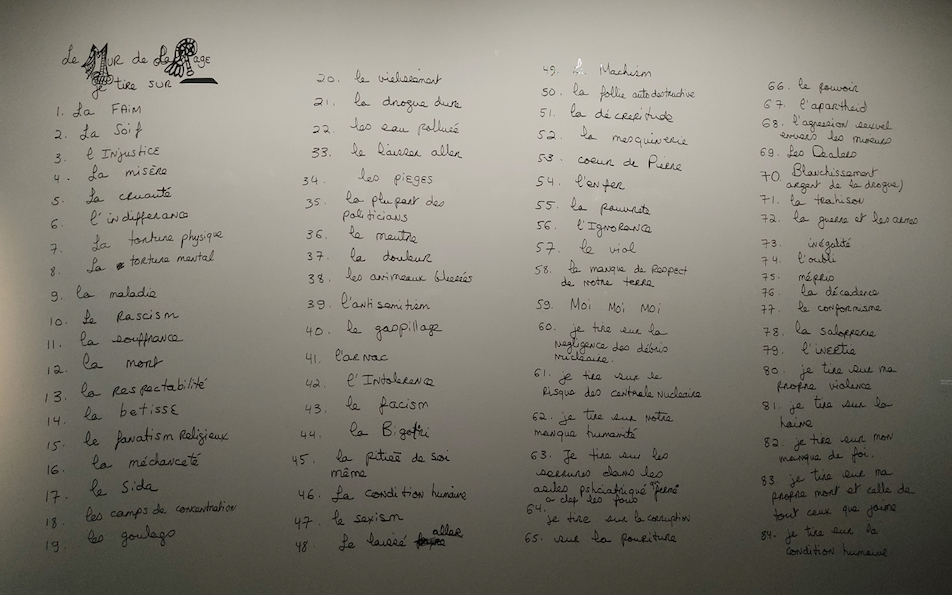 Le MUR de La Rage
je tire SUR
1. La FAIM
2. La Soif
3. l'INJUSTICE
4. La misère
5. La cruauté
6. l'indifferance
7. La tonture physique
8. La torture mental
9. la maladie
10. Le RASCISM
11. la souffrance
12. la mort
13. la Respectabilité
14. la betisse
15. le fanatism Religieux
16. la méchanceté
17. le Sida
18. les camps de concentration
19. les goulags
20. le vieilissement
21. la drogue dure
22. les eau polluée
33. le laisser aller
34. les pièges
35. la plupart des
politicians
36. le meutre
37. la douleur
38. les animeaux blessés
39. l'antisemitism
40. le gaspillage
41. l'arnac
42. l'Intolerence
43. le facism
44. la Bigotri
45. la pitieé de soi
même
46. La condition humaine
47. le sexism
48. Le laissé aller
49. Le Machism
50. la follie autodestructive
51. la décrepitude
52. la mesquinerie
53. coeur de Pierre
54. l'enfer
55. la pauvrete
56. l'IgNORANCE
57. le viol
58. le manque de Respect
de notre terre
59. Moi Moi Moi
60. je tire sur la
negligence des débris
nucleaire.
61. je tire sur le
Risque des centrale Nucleaire
62. je tire sur notre
manque humanité
63. Je tire sur les
serrures dans les
asiles pshciatrique "fermé
a clef les fous
64. je tire sur la corruption
65. sur la pouriture
66. le pouvoir
67. l'apartheid
68. l'agression sexuel
envers les mineurs
69. Les Dealers
70. Blanchissement
argent de la drogue)
71. la trahison
72. la guerre et les armes
73. inégalité
74. l'oubli
75. mépris
76. la décadence
77. le conformisme
78. la saloperie
79. l'inertie
80. je tire sur ma
propre violence
81. je tire sur la
haine
82. je tire sur mon
manque de foi.
83. je tire sur ma
propre mort et celle de
tout ceux que j'aime
84. je tire sur la
condition humaine